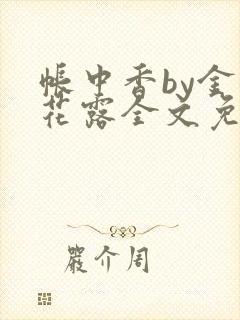 帐中香by金
花露全文免
嚴介周